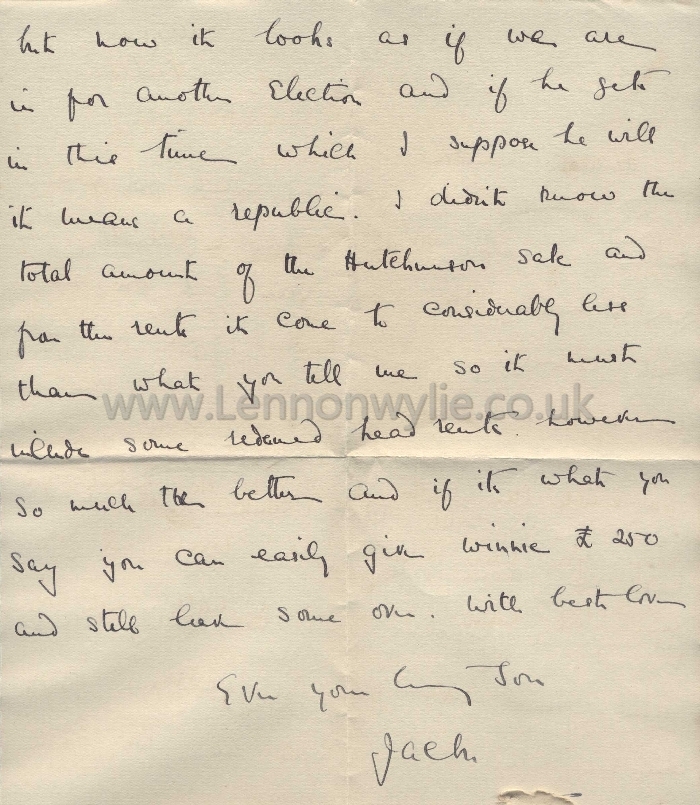 but now it looks as if we are
in for another Election and if he gets
in this time which I suppose he will
it means a republic. I didn't know the
total amount of the Hutchinson sale and
from the rents it come to considerably less
than what you tell me so it must
www.Lennonwylie.co.uk
include some redeemed head rents. however
so much the better and if its what you
say you can easily give Winnie £250
and still have some over. With best love
Ever your loving Son
Jack.